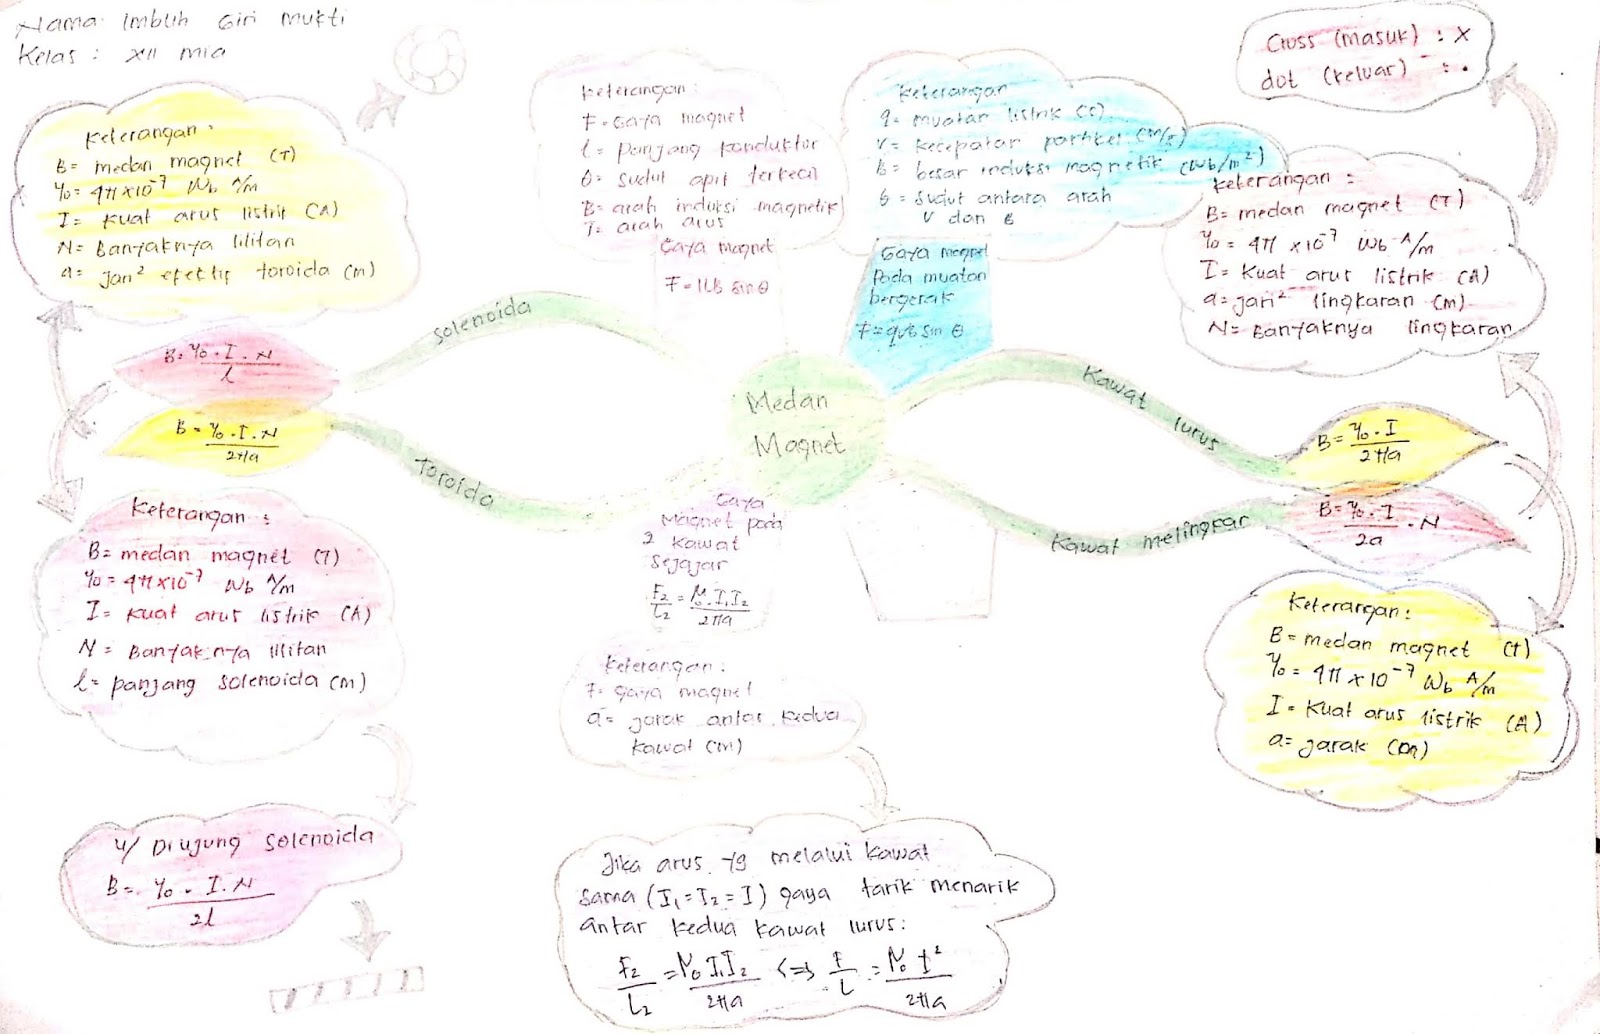 Nama: Imbuh Giri Mukti
Kelas : XII mia
Keterangan :
B= medan magnet (T)
γo = 4π×10⁻⁷ Wb A/m
I= Kuat arus listrik (A)
N= Banyaknya lilitan
a= jari² efektif toroida (m)
Keterangan :
F= Gaya magnet
l = panjang konduktor
θ= sudut apit terkecil
B= arah induksi magnetik
I= arah arus
Gaya magnet
F= ILB sin θ
Keterangan
q= muatan listrik (C)
v= kecepatan partikel (m/s)
B= besar induksi magnetik (Wb/m²)
θ= sudut antara arah
v dan B
Gaya magnet
Pada muatan
bergerak
F= qvB sin θ
Cross (masuk) : x
dot (keluar) : .
Keterangan :
B= medan magnet (T)
γo = 4π ×10⁻⁷ Wb A/m
I= Kuat arus listrik (A)
a= jari² lingkaran (m)
N= Banyaknya lingkaran
solenoida
B= γo . I . N
l
B= γo . I . N
2πa
toroida
Medan
Magnet
Kawat lurus
B= γo . I
2πa
Kawat melingkar
B= γo . I . N
2a
Keterangan :
B= medan magnet (T)
γo = 4π×10⁻⁷ Wb A/m
I= Kuat arus listrik (A)
N = Banyaknya lilitan
l= panjang solenoida (m)
Gaya
Magnet pada
2 kawat
sejajar
F₂ = μo I₁ I₂
L₂ 2πa
Keterangan :
F= gaya magnet
a= jarak antar kedua
kawat (m)
Keterangan :
B= medan magnet (T)
γo = 4π × 10⁻⁷ Wb A/m
I= Kuat arus listrik (A)
a= jarak (m)
u/ Di ujung solenoida
B= γo . I . N
2l
Jika arus yg melalui kawat
sama (I₁=I₂=I) gaya tarik menarik
antar kedua kawat lurus :
F₂ = μo I₁ I₂ <=> F = μo I²
L₂ 2πa L 2πa